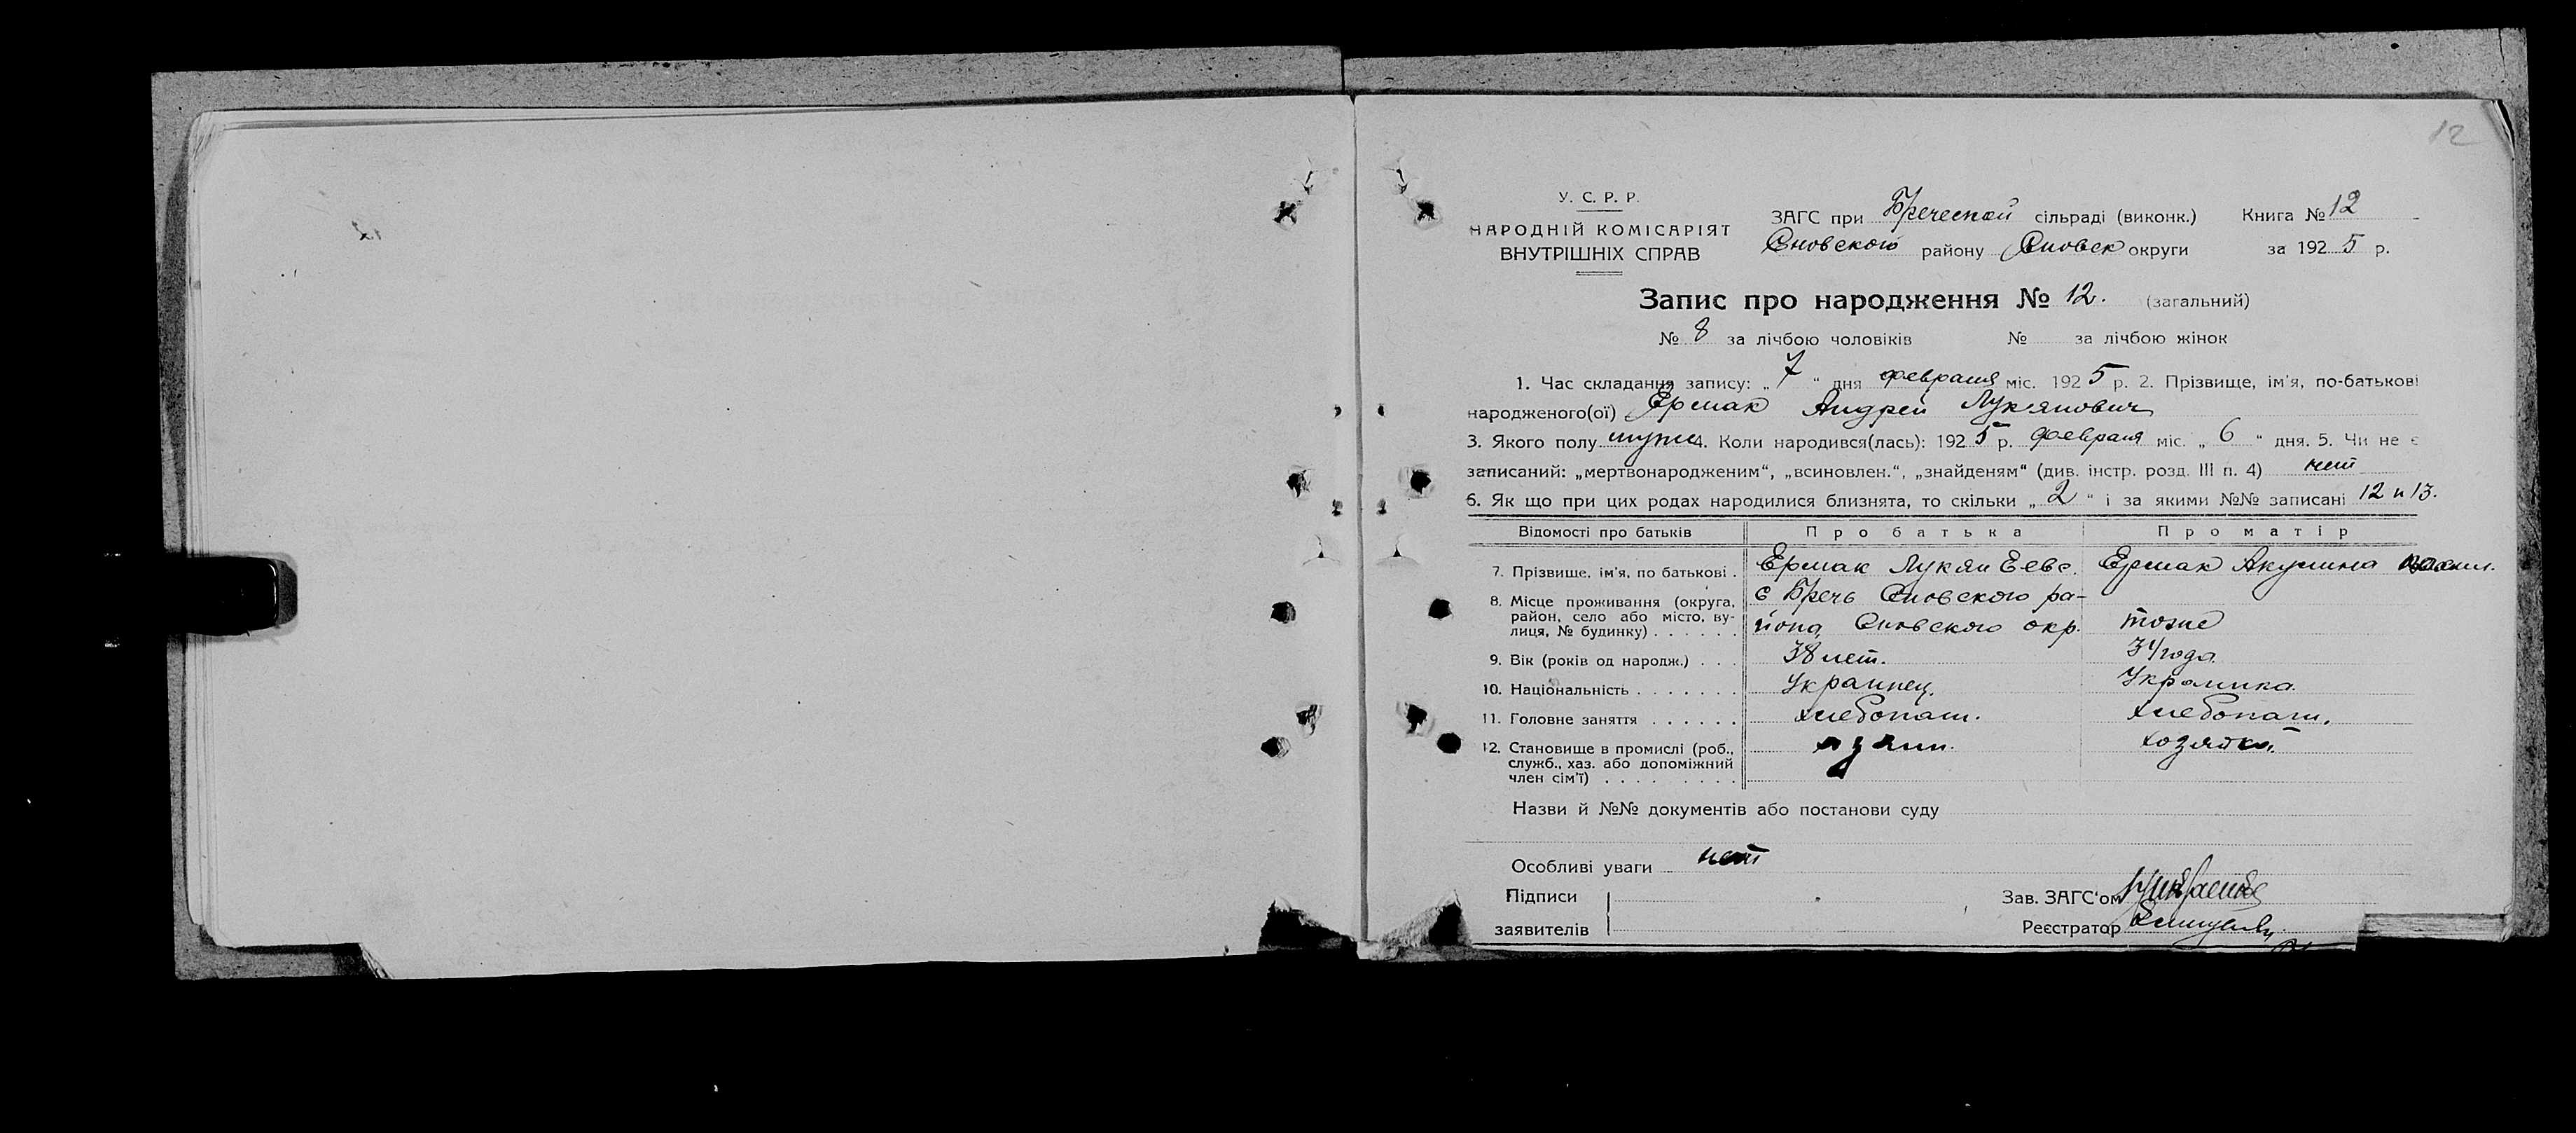 12
У. С. Р. Р.
НАРОДНІЙ КОМІСАРІЯТ
ВНУТРІШНІХ СПРАВ
ЗАГС при Бреческой сільраді (виконк.) Книга № 12
Сновского району Сновск округи за 1925 р.
Запис про народження № 12. (загальний)
№ 8 за лічбою чоловіків № за лічбою жінок
1. Час складання запису: „7“ дня февраля міс. 1925 р. 2. Прізвище, ім'я, по-батькові
народженого(ої) Ермак Андрей Лукянович
3. Якого полу муж. 4. Коли народився(лась): 1925 р. февраля міс. „6“ дня. 5. Чи не є
записаний: „мертвонародженим“, „всиновлен.“, „знайденям“ (див. інстр. розд. III п. 4) нет
6. Як що при цих родах народилися близнята, то скільки „2“ і за якими №№ записані 12 и 13.
Відомості про батьків Про батька Про матір
7. Прізвище, ім'я, по батькові . Ермак Лукян Евс. Ермак Акулина
8. Місце проживання (округа, район, село або місто, вулиця, № будинку) . . . . . . с Бречь Сновского района, Сновского окр. тоже
9. Вік (років од народж.) . . . 38 лет. 34 года
10. Національність . . . . . . . Украинец. Украинка.
11. Головне заняття . . . . . . хлебопаш. хлебопаш.
12. Становище в промислі (роб., служб., хаз. або допоміжний член сім'ї) . . . . . . . . . хозяйка
Назви й №№ документів або постанови суду
Особливі уваги нет
Підписи
заявителів
Зав. ЗАГС'ом
Реєстратор